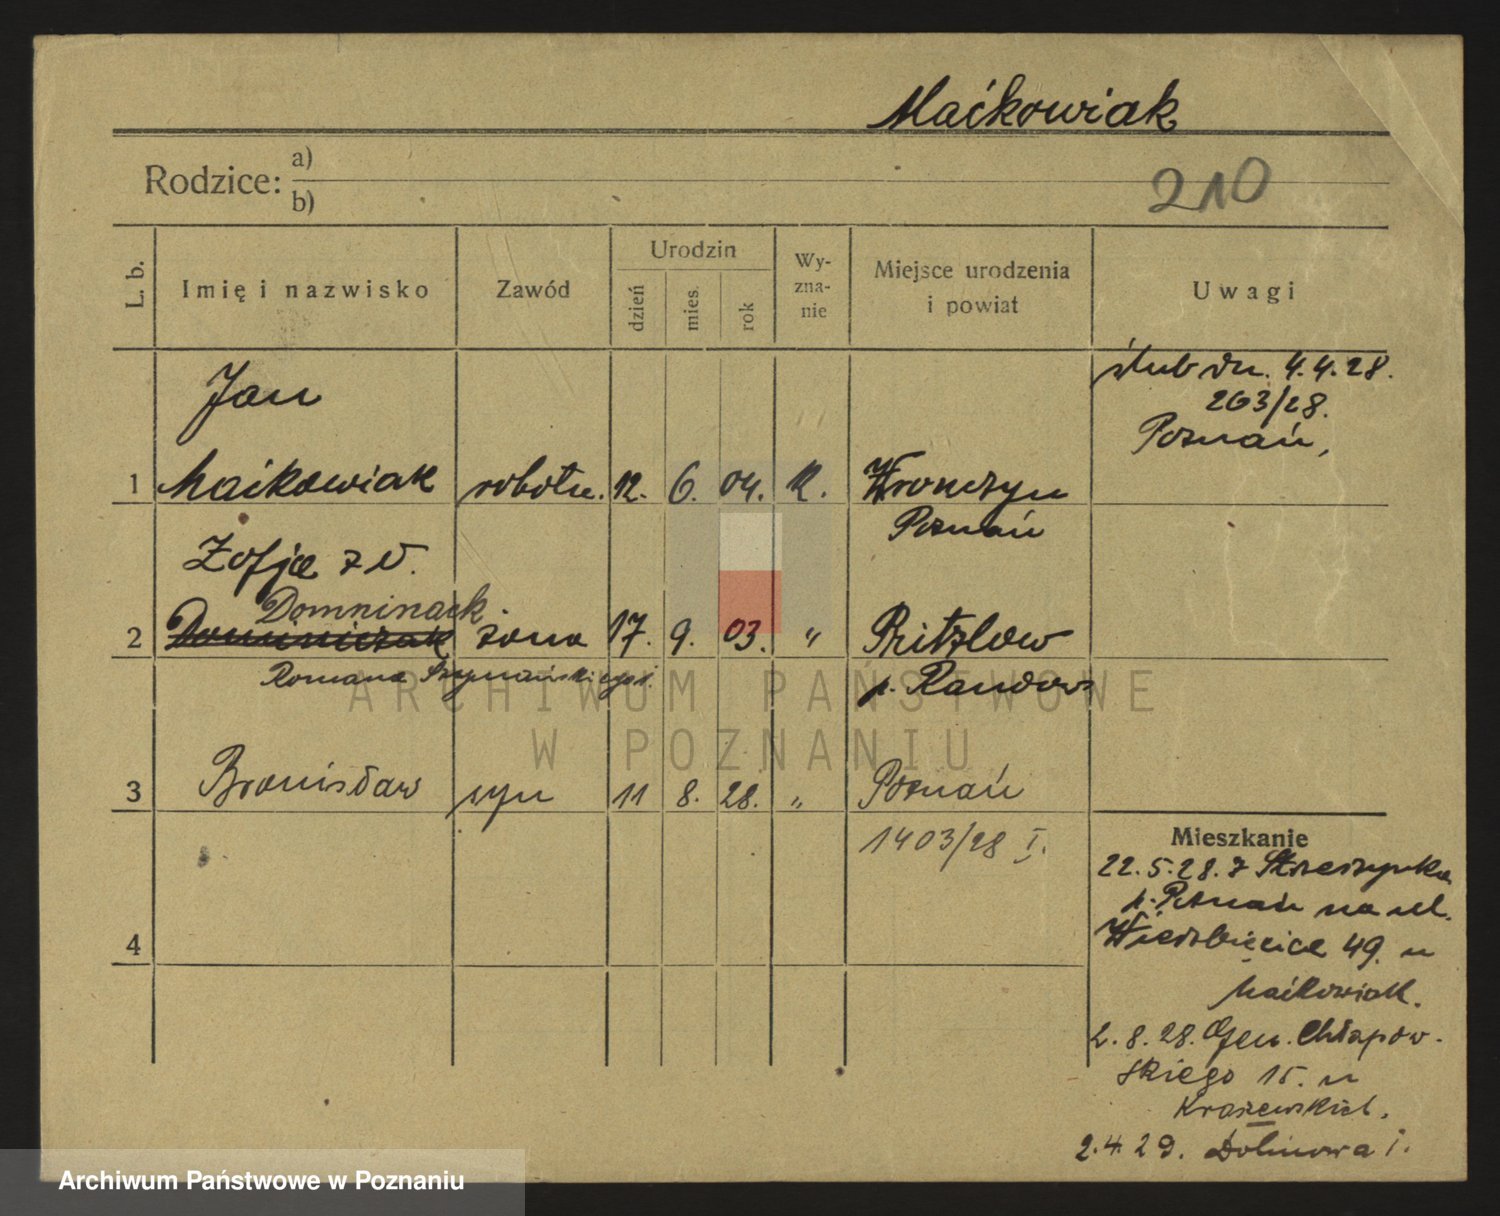 Maćkowiak
Rodzice: a)
b)
210
L. b.
Imię i nazwisko
Zawód
Urodzin
dzień
mies.
rok
Wy-
zna-
nie
Miejsce urodzenia
i powiat
Uwagi
ślub dn. 4.4.28.
263/28.
Poznań,
Jan
1 Maćkowiak robotn. 12. 6. 04. k. Wronczyn
Poznań
Zofja z d.
Domninack.
2 Dominiczak żona 17. 9. 03. " Pritzlow
Romana Szymańskiego p. Randow
3 Bronisław syn 11 8. 28. " Poznań
1403/28 I.
4
Mieszkanie
22.5.28. z Strzeszynka
p. Poznań na ul.
Wierzbięcice 49. u
Maćkowiak.
2.8.28. Gen. Chłapow-
skiego 15. u
Kraszewskich.
2.4.29. Dolinowa 1.
ARCHIWUM PAŃSTWOWE
W POZNANIU
Archiwum Państwowe w Poznaniu